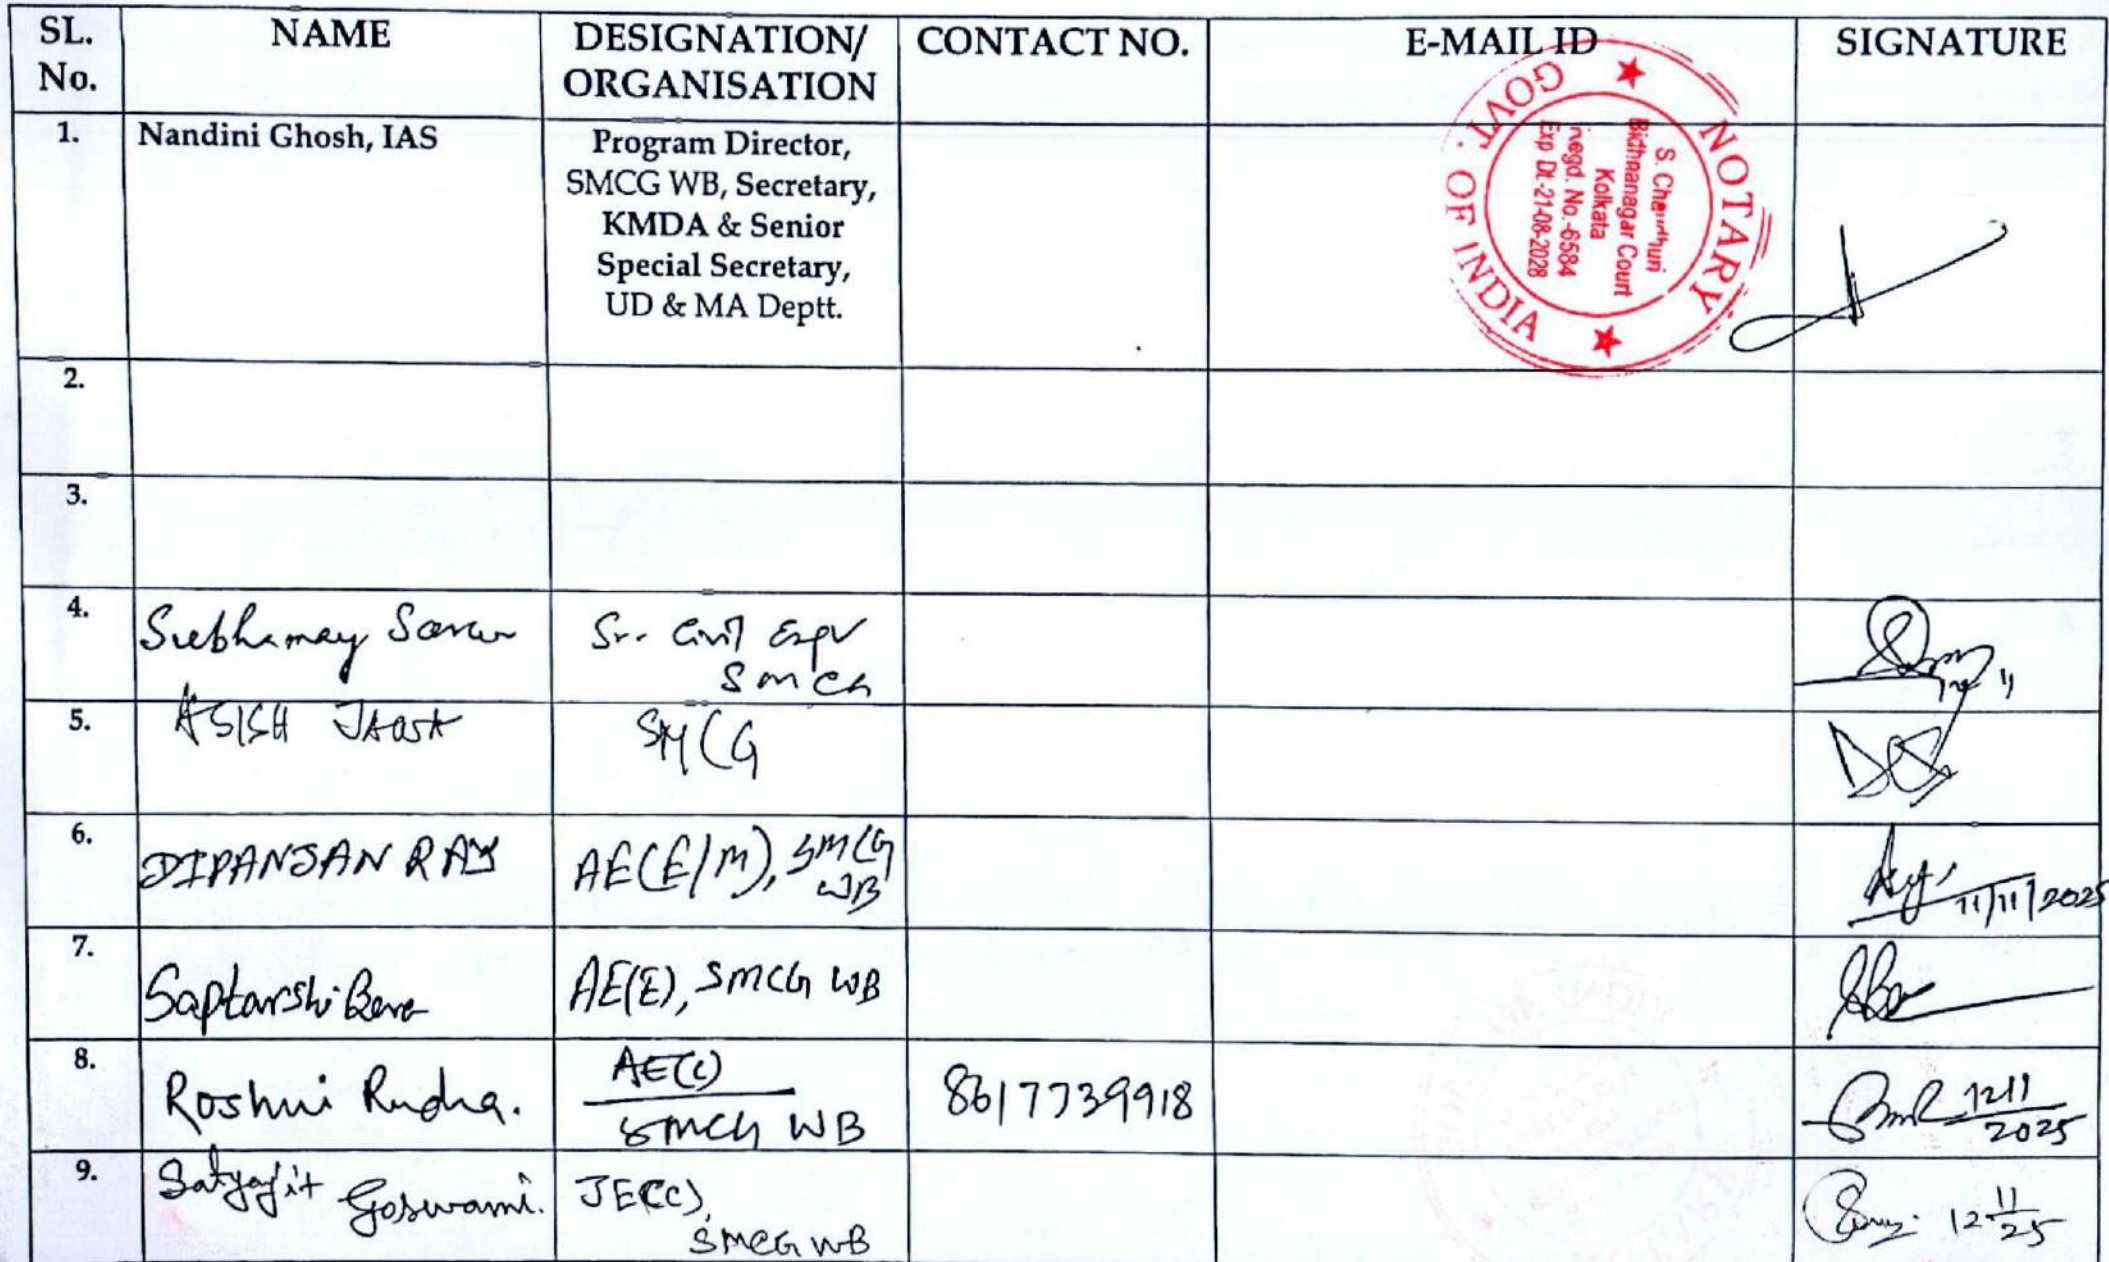 SL. No. NAME DESIGNATION/ ORGANISATION CONTACT NO. E-MAIL ID SIGNATURE
1. Nandini Ghosh, IAS
Program Director,
SMCG WB, Secretary,
KMDA & Senior
Special Secretary,
UD & MA Deptt.
GOVT. OF INDIA
NOTARY
S.
Bidhannagar Court
Kolkata
No.-6584
Exp Dt.-21-08-2028
2.
3.
4. Subhamay Sr. Civil
5. ASISH SMCG
6. DIPANJAN RAY AE(E/M), SMCG
WB
11/11/2025
7. Saptarshi Bera AE(E), SMCG WB
8. Roshni Rudra. AE(C)
SMCG WB
8617739918
12 11
2025
9. Satyajit Goswami. JE(C),
SMCG WB
12 11
25